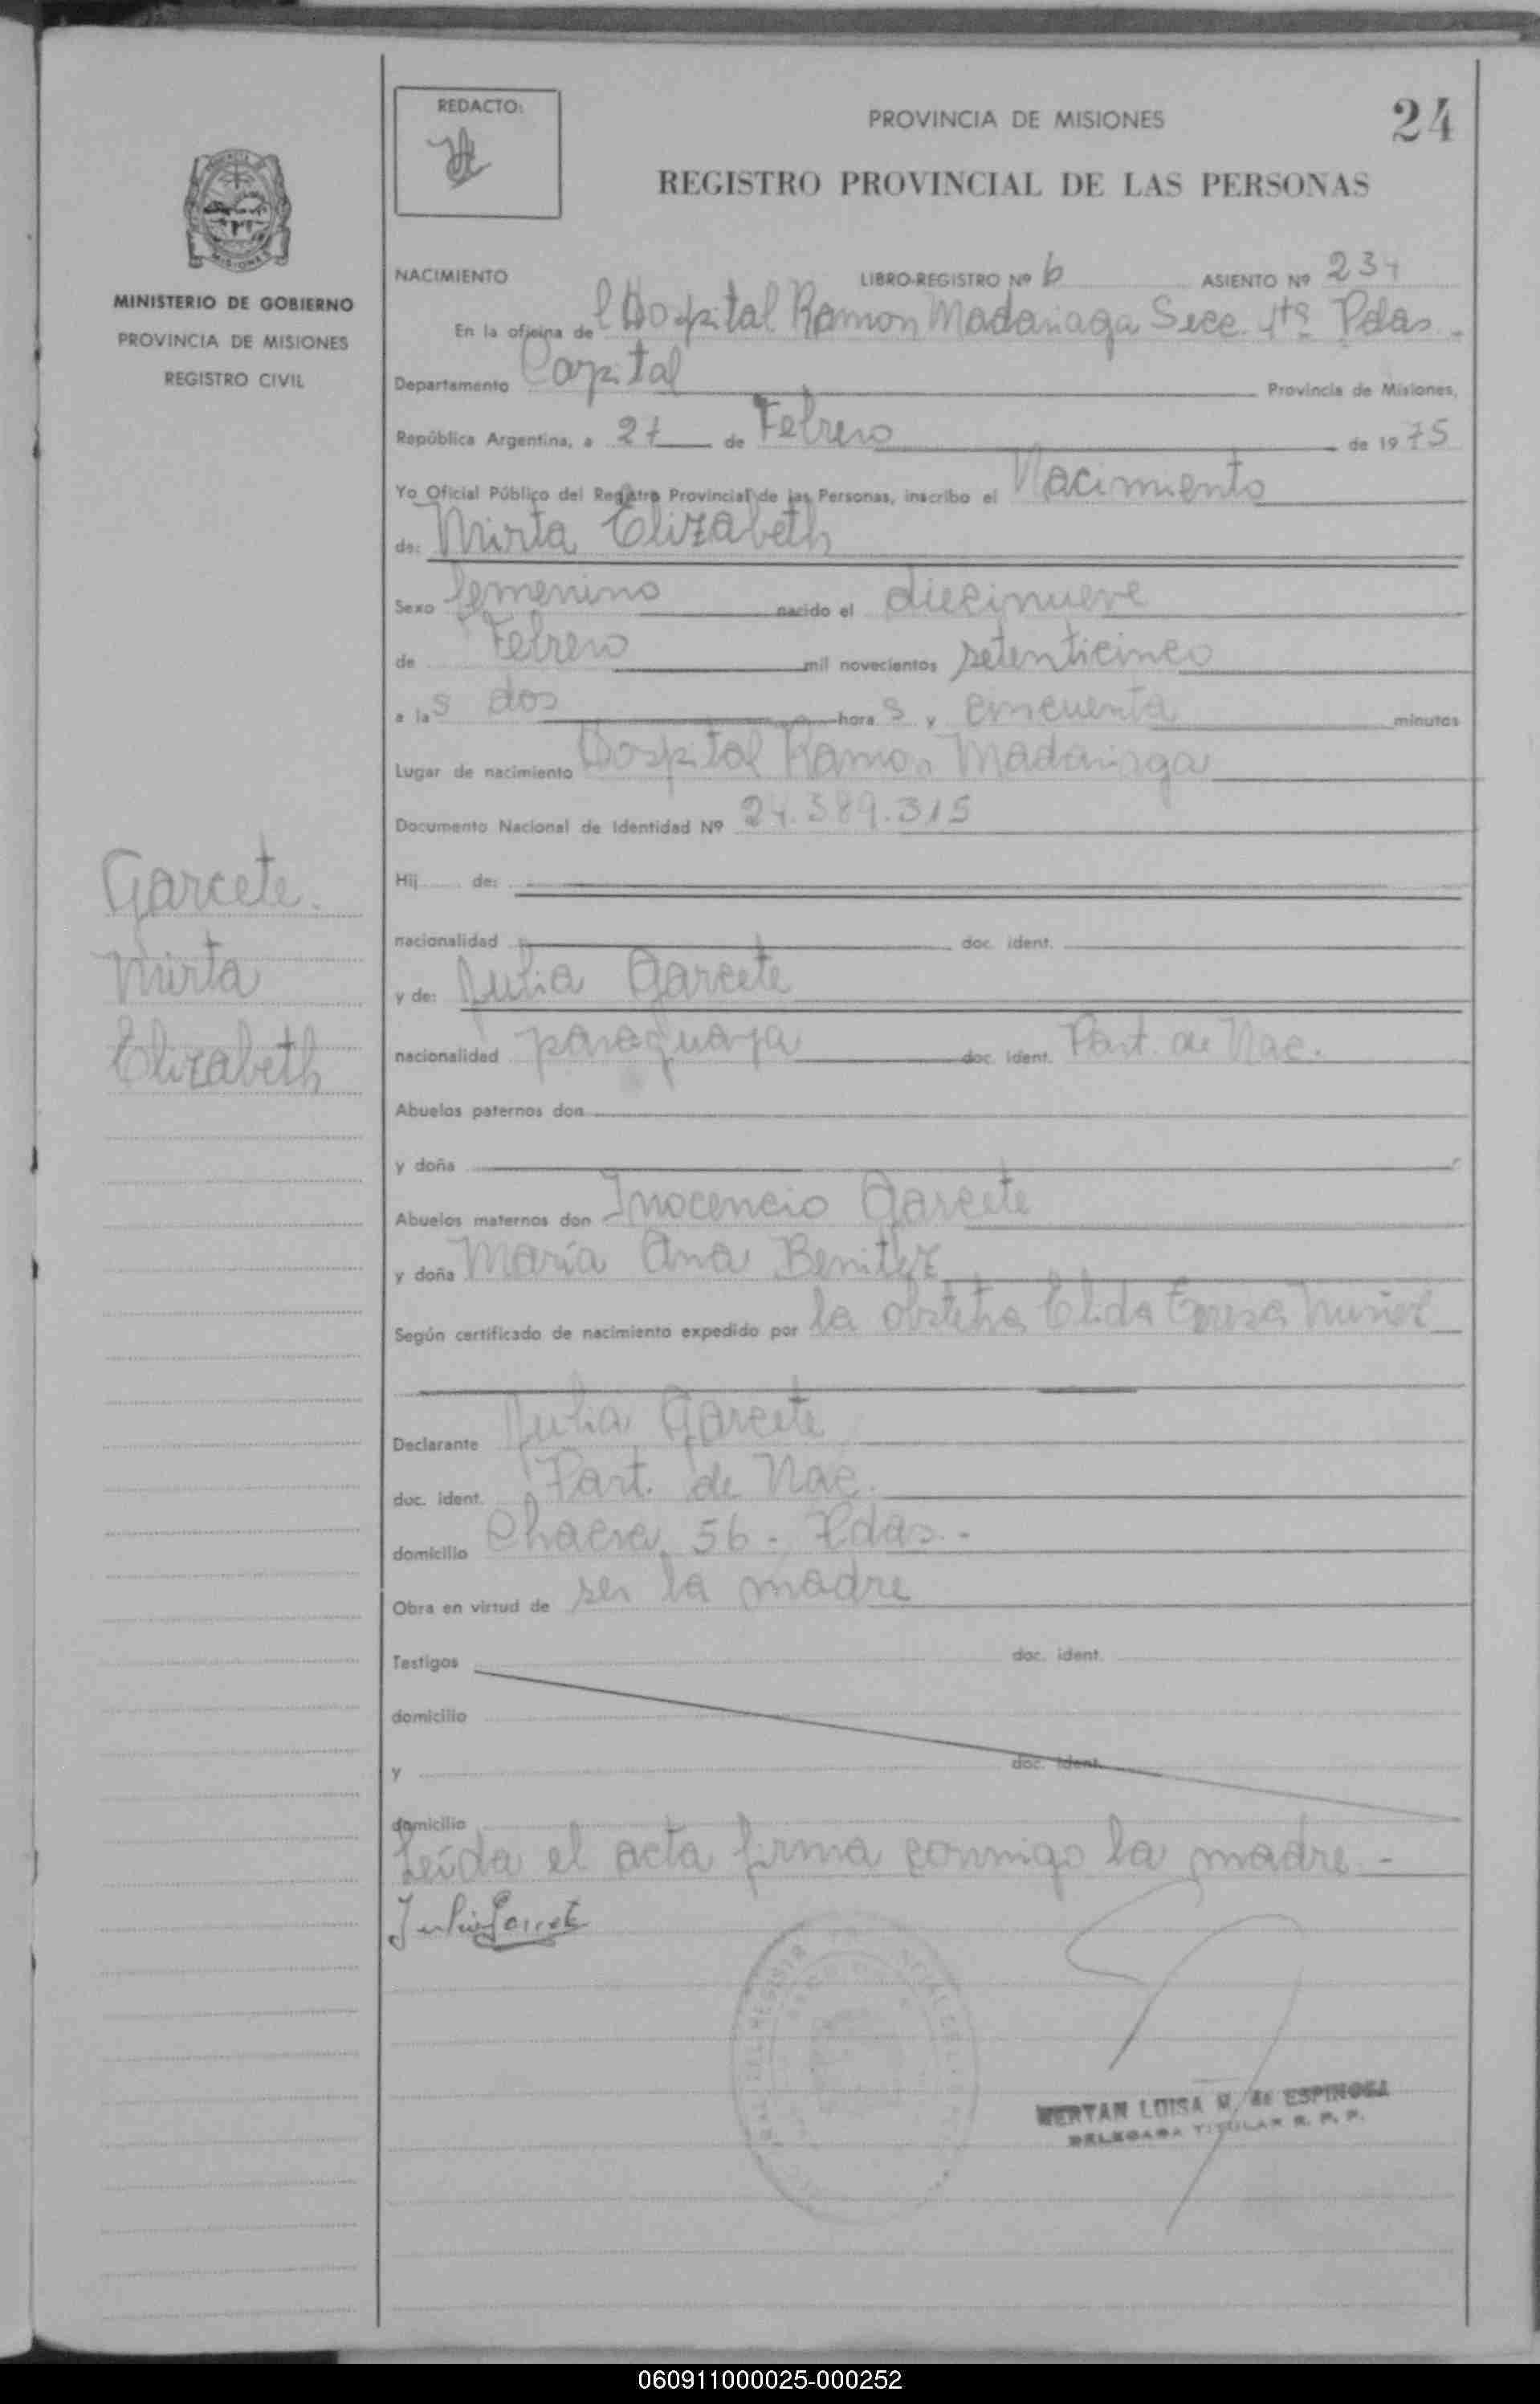 REDACTO:
PROVINCIA DE MISIONES
24
REGISTRO PROVINCIAL DE LAS PERSONAS
MINISTERIO DE GOBIERNO
PROVINCIA DE MISIONES
REGISTRO CIVIL
NACIMIENTO LIBRO-REGISTRO Nº 6 ASIENTO Nº 234
En la oficina del Hospital Ramon Madariaga Secc. 4ta Pdas.
Departamento Capital Provincia de Misiones,
República Argentina, a 27 de Febrero de 1975
Yo Oficial Público del Registro Provincial de las Personas, inscribo el Nacimiento
de: Mirta Elizabeth
Sexo femenino nacido el diecinueve
de Febrero mil novecientos setenticinco
a las dos horas y cincuenta minutos
Lugar de nacimiento Hospital Ramon Madariaga
Documento Nacional de Identidad Nº 24.389.315
Hij de:
nacionalidad doc. ident.
Garcete
Mirta
Elizabeth
y de: Julia Garcete
nacionalidad paraguaya doc. ident. Part. de Nac.
Abuelos paternos don
y doña
Abuelos maternos don Inocencio Garcete
y doña María Ana Benitez
Según certificado de nacimiento expedido por la obstetra Elida Teresa Nuñez
Declarante Julia Garcete
doc. ident. Part. de Nac.
domicilio Chacra 56 - Pdas.-
Obra en virtud de ser la madre
Testigos doc. ident.
domicilio
y doc. ident.
domicilio
Leída el acta firma conmigo la madre.-
Julia Garcete
LUISA M. de ESPINOSA
DELEGADA TITULAR R. P. P.
060911000025-000252